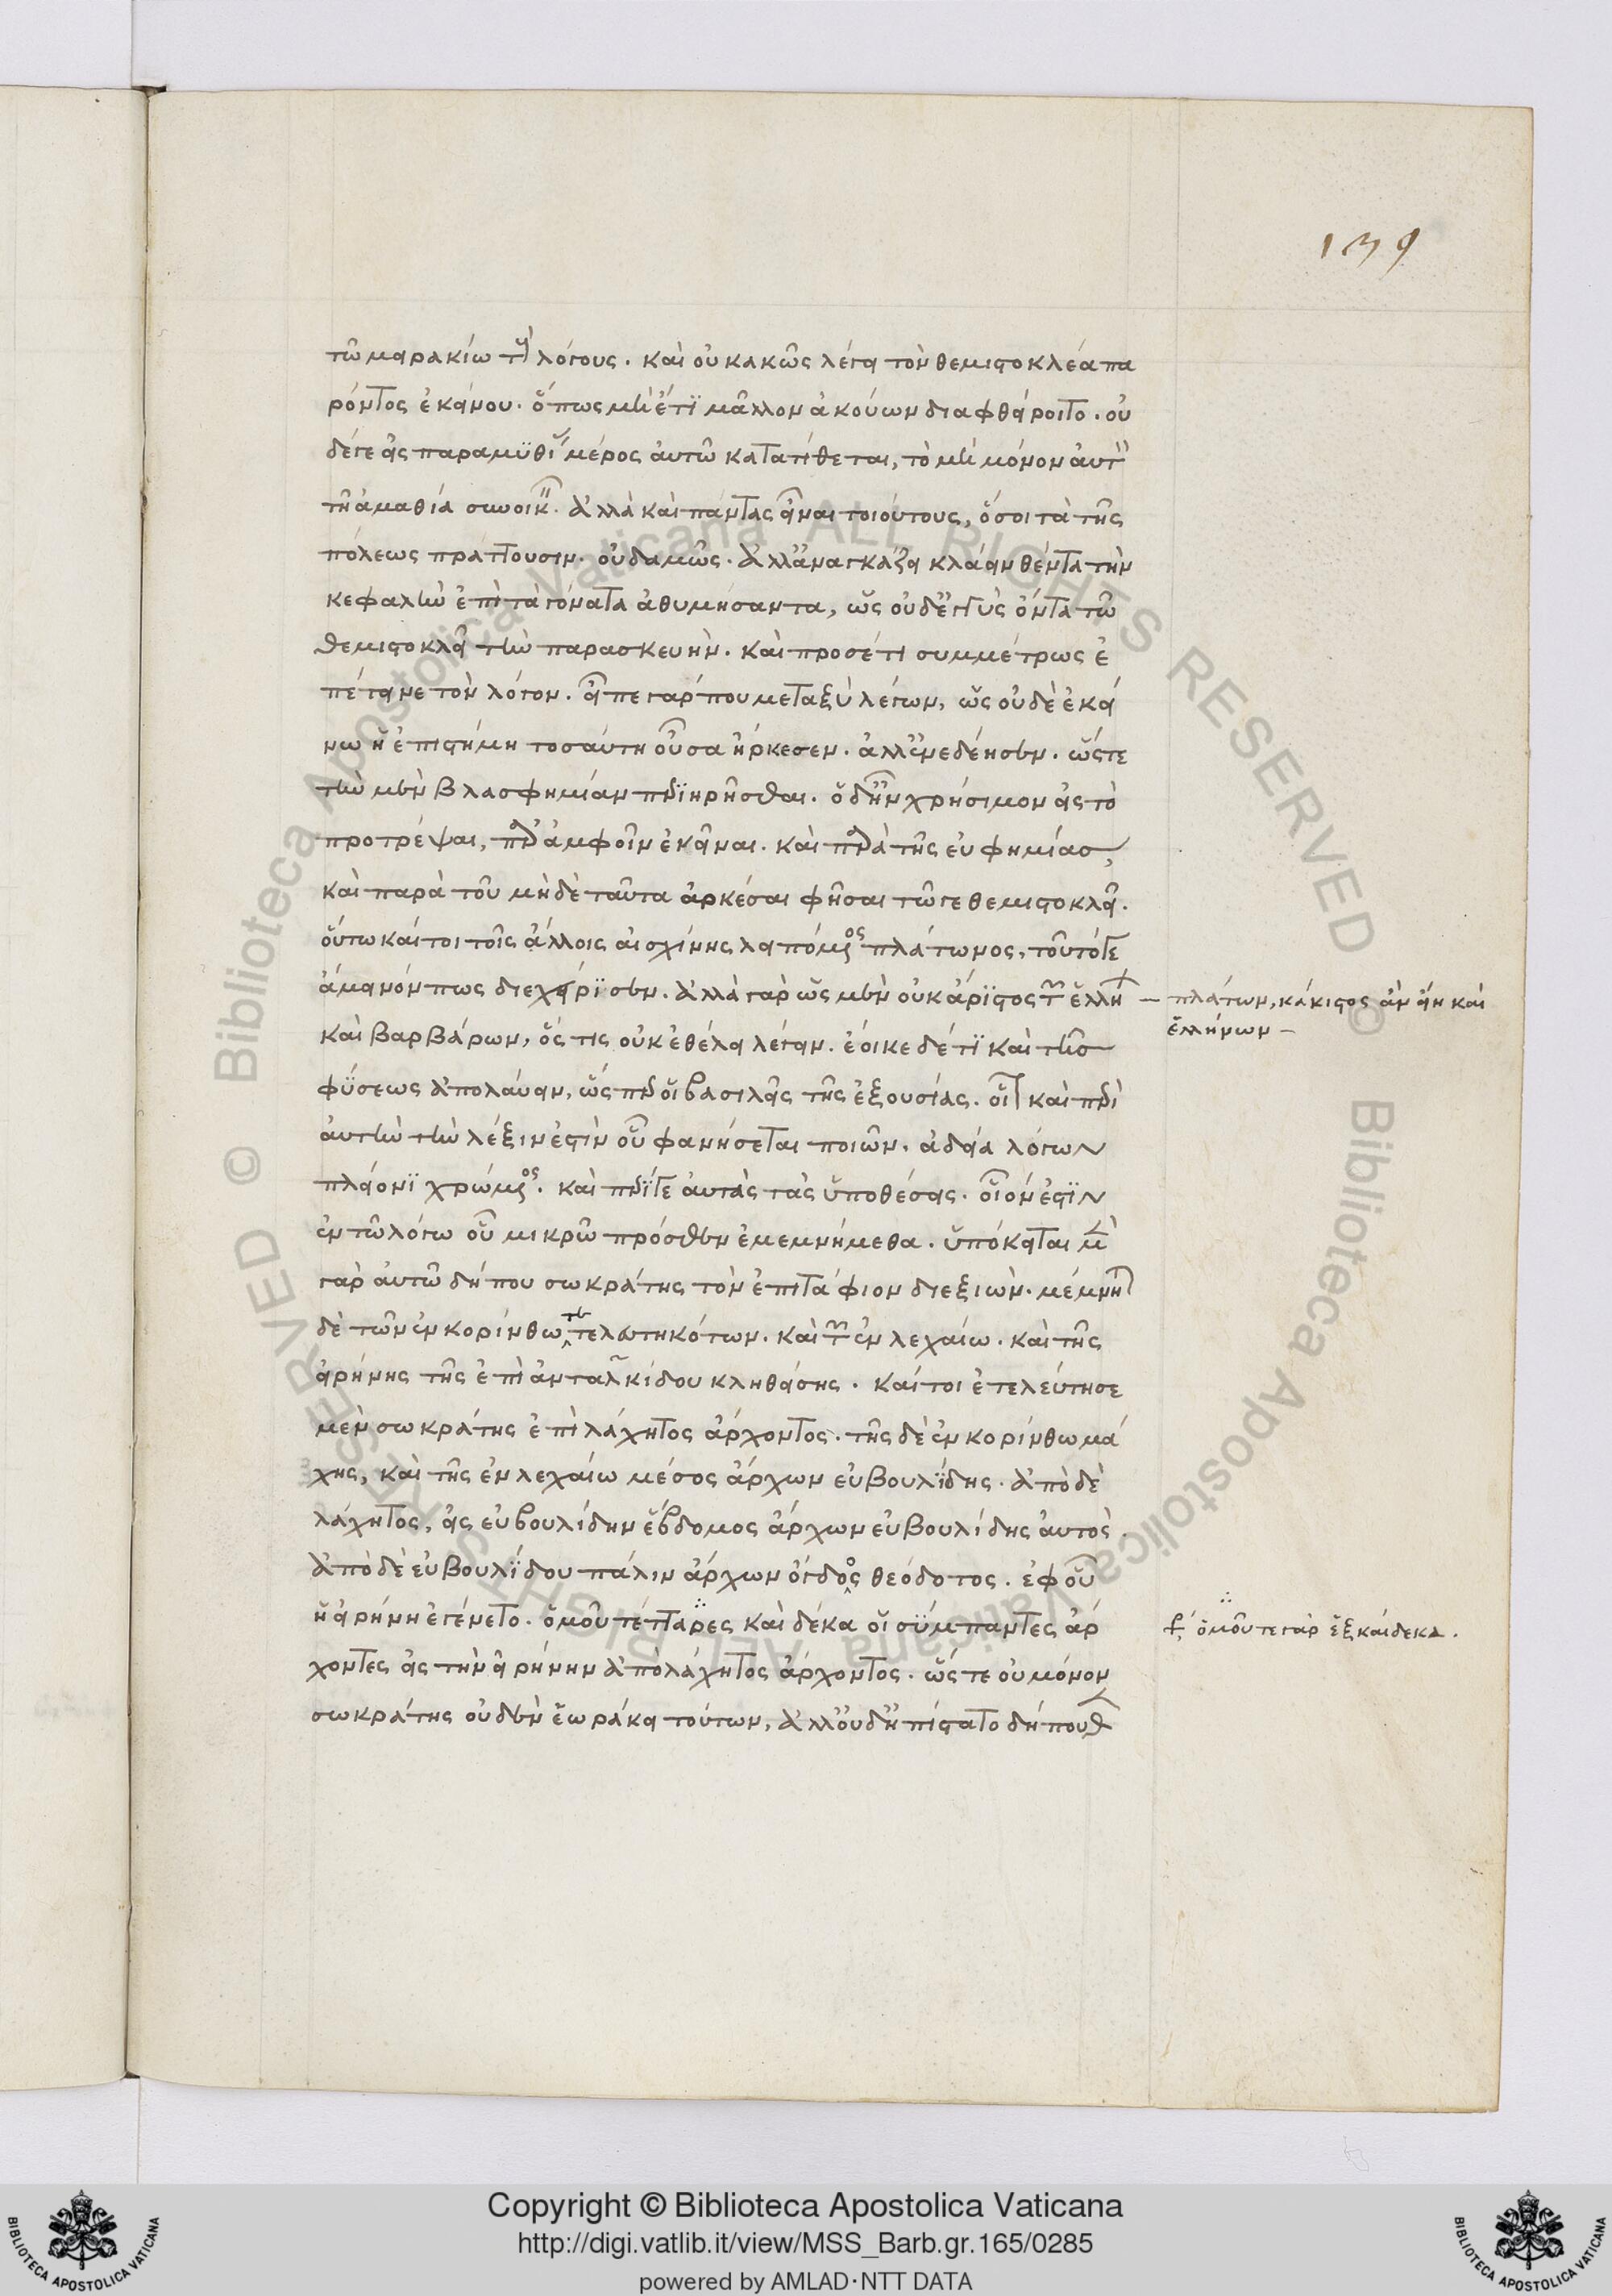 139
τῷ μειρακίῳ τοὺς λόγους. καὶ οὐ κακῶς λέγει τὸν θεμιστοκλέα πα
ρόντος ἐκείνου. ὅπως μὴ ἔτι μᾶλλον ἀκούων διαφθείροιτο. οὐ
δέ γε εἰς παραμυθίας μέρος αὐτῷ κατατίθεται, τὸ μὴ μόνον αὐτὸν
τῇ ἀμαθίᾳ συνοικεῖν. ἀλλὰ καὶ πάντας εἶναι τοιούτους, ὅσοι τὰ τῆς
πόλεως πράττουσιν. οὐδαμῶς. ἀλλ' ἀναγκάζει κλάειν θέντα τὴν
κεφαλὴν ἐπὶ τὰ γόνατα ἀθυμήσαντα, ὡς οὐδ' ἐγγὺς ὄντα τῷ
θεμιστοκλεῖ τὴν παρασκευήν. καὶ προσέτι συμμέτρως ἐ
πέτεινε τὸν λόγον. εἶπε γάρ που μεταξὺ λέγων, ὡς οὐδὲ ἐκεί
νῳ ἡ ἐπιστήμη τοσαύτη οὖσα ἤρκεσεν. ἀλλ' ἐνεδέησεν. ὥστε
τὴν μὲν βλασφημίαν περιῃρῆσθαι. ὃ δ' ἦν χρήσιμον εἰς τὸ
προτρέψαι, παρ' ἀμφοῖν ἐκεῖναι. καὶ παρὰ τῆς εὐφημίας,
καὶ παρὰ τοῦ μηδὲ ταῦτα ἀρκέσαι φῆσαι τῷ γε θεμιστοκλεῖ.
οὕτω καίτοι τοῖς ἄλλοις αἰσχίνης λειπόμενος πλάτωνος, τοῦτό γε
ἄμεινόν πως διεχείρισεν. ἀλλὰ γὰρ ὡς μὲν οὐκ ἄριστος τῶν ἑλλήνων
καὶ βαρβάρων, ὅς τις οὐκ ἐθέλει λέγειν. ἔοικε δέ τι καὶ τῆς
φύσεως ἀπολαύειν, ὥσπερ οἱ βασιλεῖς τῆς ἐξουσίας. ὅς γε καὶ περὶ
αὐτὴν τὴν λέξιν ἐστὶν οὗ φανήσεται ποιῶν. ἀδείᾳ λόγων
πλείονι χρώμενος. καὶ περί γε αὐτὰς τὰς ὑποθέσεις. οἷον ἐστὶν
ἐν τῷ λόγῳ οὗ μικρῷ πρόσθεν ἐμεμνήμεθα. ὑπόκειται μὲν
γὰρ αὐτῷ δήπου σωκράτης τὸν ἐπιτάφιον διεξιών. μέμνηται
δὲ τῶν ἐν κορίνθῳ τετελευτηκότων. καὶ τῶν ἐν λεχαίῳ. καὶ τῆς
εἰρήνης τῆς ἐπὶ ἀνταλκίδου κληθείσης. καίτοι ἐτελεύτησε
μὲν σωκράτης ἐπὶ λάχητος ἄρχοντος. τῆς δὲ ἐν κορίνθῳ μά
χης, καὶ τῆς ἐν λεχαίῳ μέσος ἄρχων εὐβουλίδης. ἀπὸ δὲ
λάχητος, εἰς εὐβουλίδην ἕβδομος ἄρχων εὐβουλίδης αὐτός.
ἀπὸ δὲ εὐβουλίδου πάλιν ἄρχων ὄγδοος θεόδοτος. ἐφ' οὗ
ἡ εἰρήνη ἐγένετο. ὁμοῦ τέτταρες καὶ δέκα οἱ σύμπαντες ἄρ
χοντες εἰς τὴν εἰρήνην ἀπὸ λάχητος ἄρχοντος. ὥστε οὐ μόνον
σωκράτης οὐδὲν ἑωράκει τούτων, ἀλλ' οὐδ' ἠπίστατο δήπουθεν
πλάτων, κάκιστος ἂν εἴη καὶ
ἑλλήνων
ὁμοῦ τε γὰρ ἑξκαίδεκα.
Copyright © Biblioteca Apostolica Vaticana
http://digi.vatlib.it/view/MSS_Barb.gr.165/0285
powered by AMLAD·NTT DATA